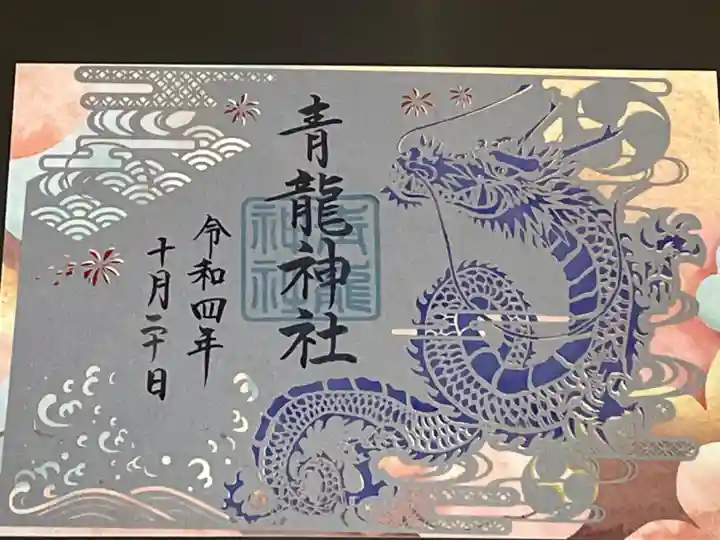 青龍神社
令和四年
十月二十日
青龍
神社